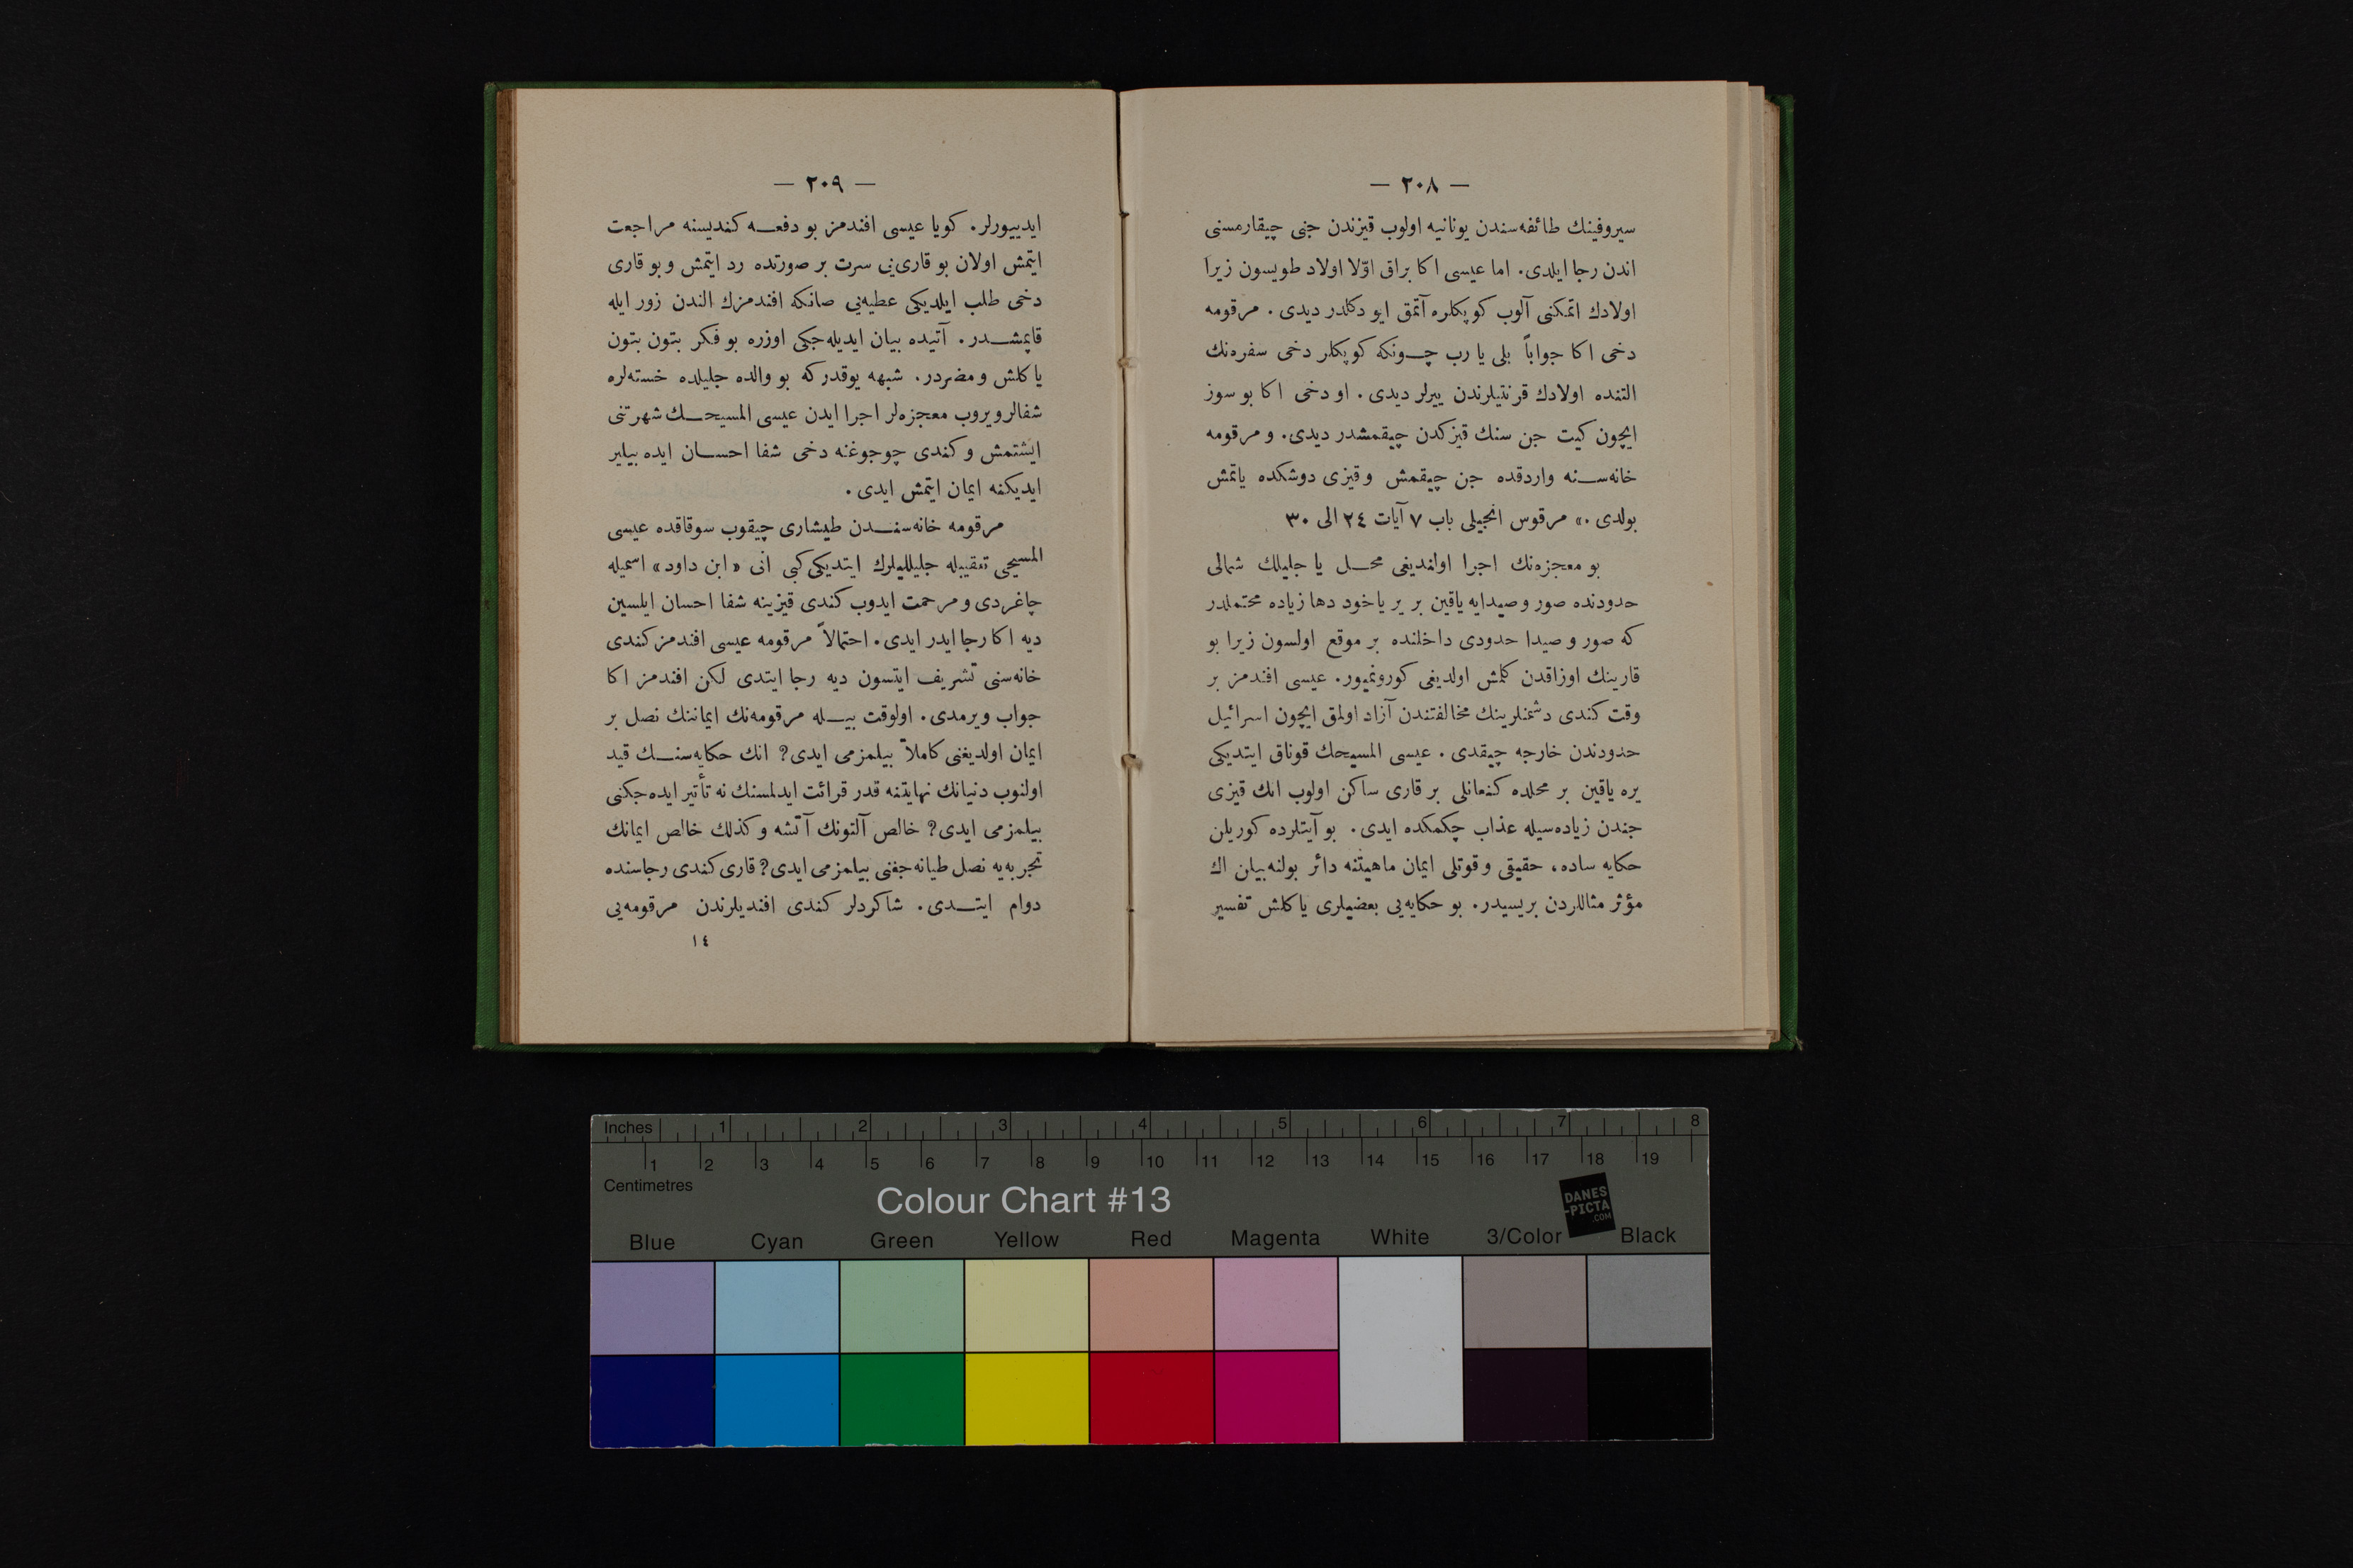 — ٢٠٨ —
سيروفينك طائفه‌سندن يونانيه اولوب قيزندن جنى چيقارمسنى
اندن رجا ايلدى. اما عيسى اكا براق اوّلا اولاد طويسون زيرا
اولادك اتمكنى آلوب كوپكلره آتمق ايو دكلدر ديدى. مرقومه
دخى اكا جواباً بلى يا رب چونكه كوپكلر دخى سفره‌نك
التنده اولادك قرنتيلرندن ييرلر ديدى. او دخى اكا بو سوز
ايچون كيت جن سنك قيزكدن چيقمشدر ديدى. و مرقومه
خانه‌سنه واردقده جن چيقمش و قيزى دوشكده ياتمش
بولدى.» مرقوس انجيلى باب ٧ آيات ٢٤ الى ٣٠
بو معجزه‌نك اجرا اولنديغى محل يا جليلك شمالى
حدودنده صور و صيدايه ياقين بر ير ياخود دها زياده محتملدر
كه صور و صيدا حدودى داخلنده بر موقع اولسون زيرا بو
قارينك اوزاقدن كلمش اولديغى كورونميور. عيسى افندمز بر
وقت كندى دشمنلرينك مخالفتندن آزاد اولمق ايچون اسرائيل
حدودندن خارجه چيقدى. عيسى المسيحك قوناق ايتديكى
يره ياقين بر محلده كنعانلى بر قارى ساكن اولوب انك قيزى
جندن زياده‌سيله عذاب چكمكده ايدى. بو آيتلرده كوريلن
حكايه ساده، حقيقى و قوتلى ايمان ماهيتنه دائر بولنه‌بيلن اك
مؤثر مثاللردن بريسيدر. بو حكايه‌يى بعضيلرى ياكلش تفسير
— ٢٠٩ —
ايدييورلر. كويا عيسى افندمز بو دفعه كنديسنه مراجعت
ايتمش اولان بو قارى‌يى سرت بر صورتده رد ايتمش و بو قارى
دخى طلب ايلديكى عطيه‌يى صانكه افندمزك الندن زور ايله
قاپمشدر. آتيده بيان ايديله‌جكى اوزره بو فكر بتون بتون
ياكلش و مضردر. شبهه يوقدركه بو والده جليلده خسته‌لره
شفالر ويروب معجزه‌لر اجرا ايدن عيسى المسيحك شهرتنى
ايشتمش و كندى چوجوغنه دخى شفا احسان ايده بيلير
ايديكنه ايمان ايتمش ايدى.
مرقومه خانه‌سندن طيشارى چيقوب سوقاقده عيسى
المسيحى تعقيبله جليلليلرك ايتديكى كبى انى «ابن داود» اسميله
چاغردى و مرحمت ايدوب كندى قيزينه شفا احسان ايلسين
ديه اكا رجا ايدر ايدى. احتمالاً مرقومه عيسى افندمز كندى
خانه‌سنى تشريف ايتسون ديه رجا ايتدى لكن افندمز اكا
جواب ويرمدى. اولوقت بيله مرقومه‌نك ايماننك نصل بر
ايمان اولديغنى كاملاً بيلمزمى ايدى؟ انك حكايه‌سنك قيد
اولنوب دنيانك نهايتنه قدر قرائت ايدلمسنك نه تأثير ايده‌جكنى
بيلمزمى ايدى؟ خالص آلتونك آتشه و كذلك خالص ايمانك
تجربه‌يه نصل طيانه‌جغنى بيلمزمى ايدى؟ قارى كندى رجاسنده
دوام ايتدى. شاكردلر كندى افنديلرندن مرقومه‌يى
١٤
Inches 1 2 3 4 5 6 7 8
1 2 3 4 5 6 7 8 9 10 11 12 13 14 15 16 17 18 19
Centimetres
Colour Chart #13
DANES
-PICTA
.COM
Blue Cyan Green Yellow Red Magenta White 3/Color Black